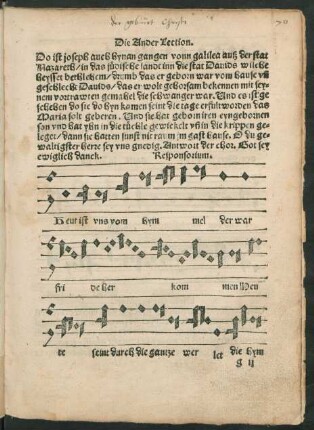 der geburt Christi
Die Ander Lection.
Do ist joseph auch hynan gangen vonn galilea auß der stat
Nazareth/in das jüdische landt inn die stat Dauids wilche
heysset bethlehem/drumb das er geborn war vom hause vñ
geschlecht Dauids/das er wolt gehorsam bekennen mit sey-
nem vortrawten gemahel die schwanger war. Und es ist ge
schehen do sie do hyn kamen seint die tage erfult worden das
Maria solt geberen. Und sie hat geboren iren eyngebornen
son und hat yhn in die tüchle gewickelt vñ in die krippen ge-
leget/dann sie hatten sunst nit raum jm gast hause. O du ge-
waltigster herre sey vns gnedig. Antwort der chor. Got sey
ewiglich danck. Responsorium.
Heut ist vns vom hym mel der war
fri de her kom men Hen
te seint durch die gantze wer let die hym
g ij